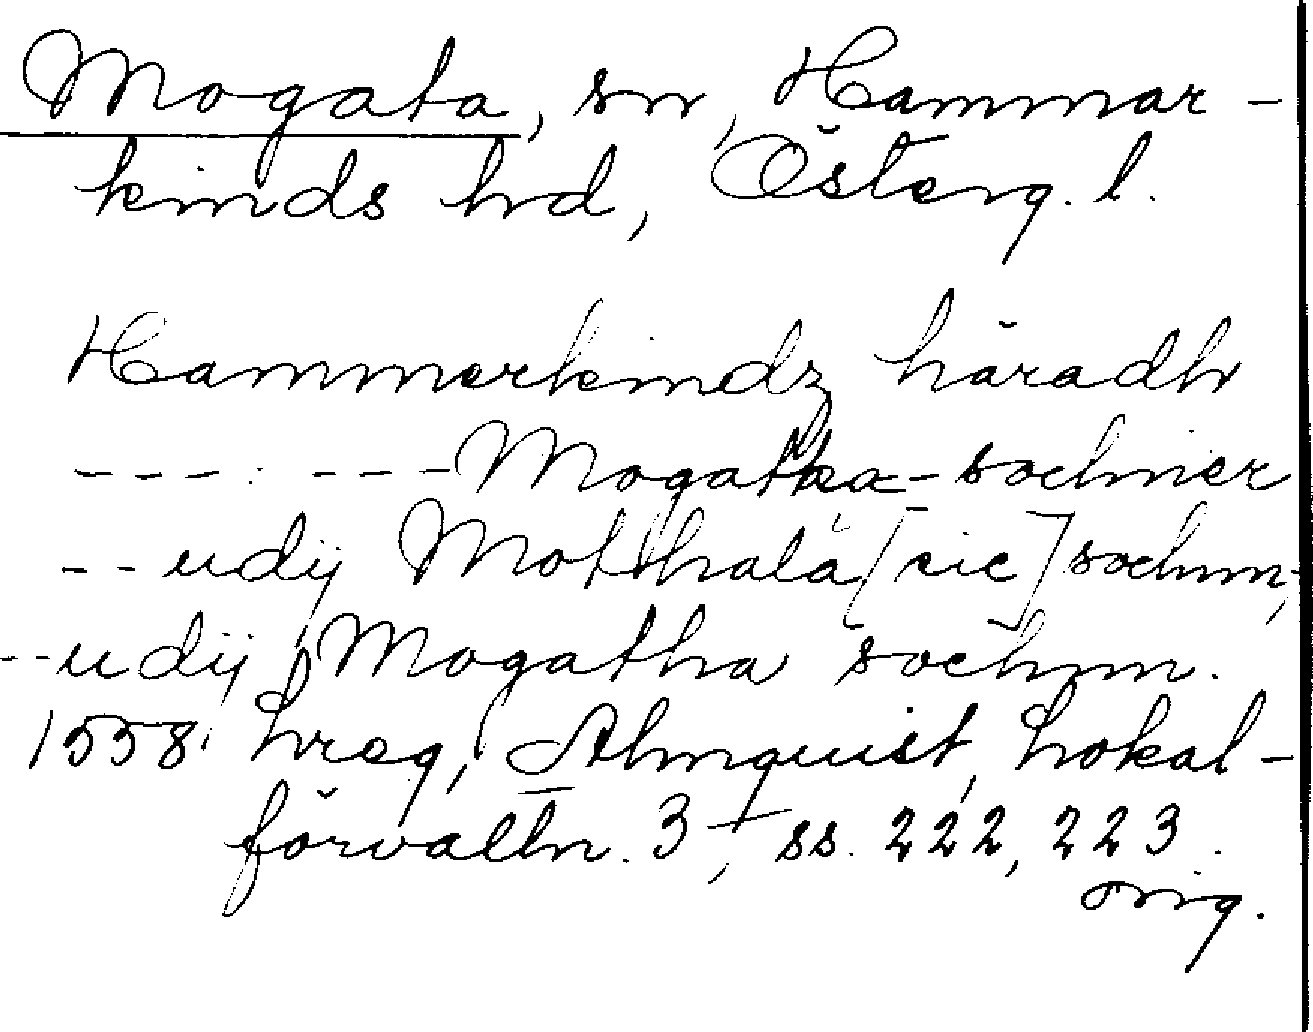 Mogata, sn, Hammar-
kinds hd, Österg. l.
Hammerkindz häradh
--- . --- Mogatha sochner
-- udij Mokthala [sic] sochnn,
-- udij Mogatha sochnn.
1558. hreg, Almquist, Lokal-
förvaltn. 3, ss. 222, 223.
orig.